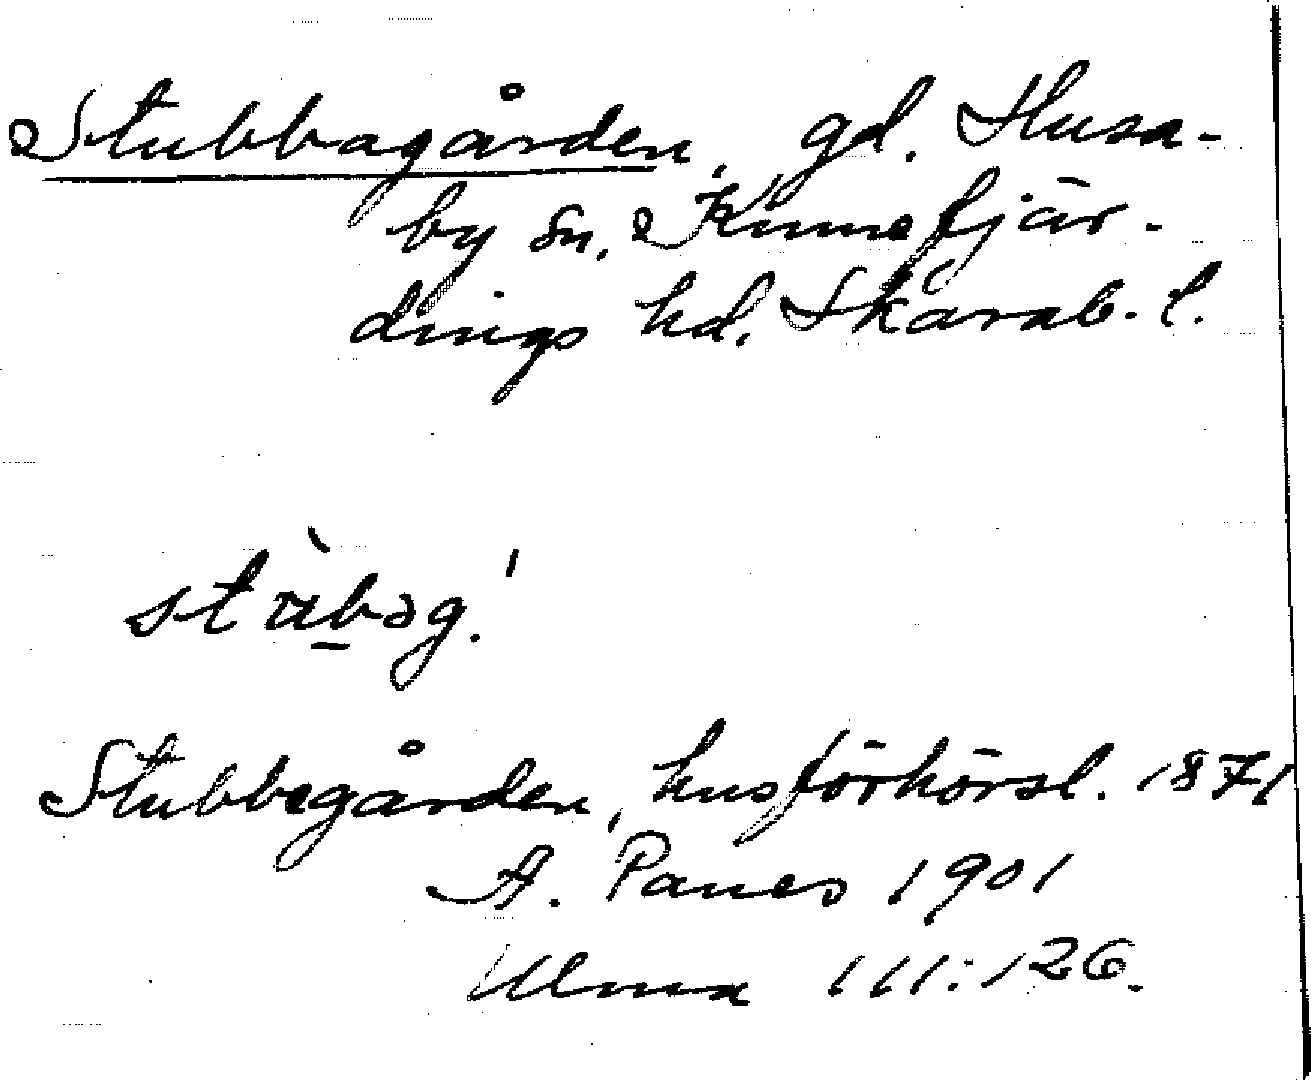 Stubbagården, gd. Husa-
by sn, Kinnefjär-
dings hd, Skarab. l.
Stubbegården, husförhörsl. 1871
A. Palues 1901
Ulma 111:126.